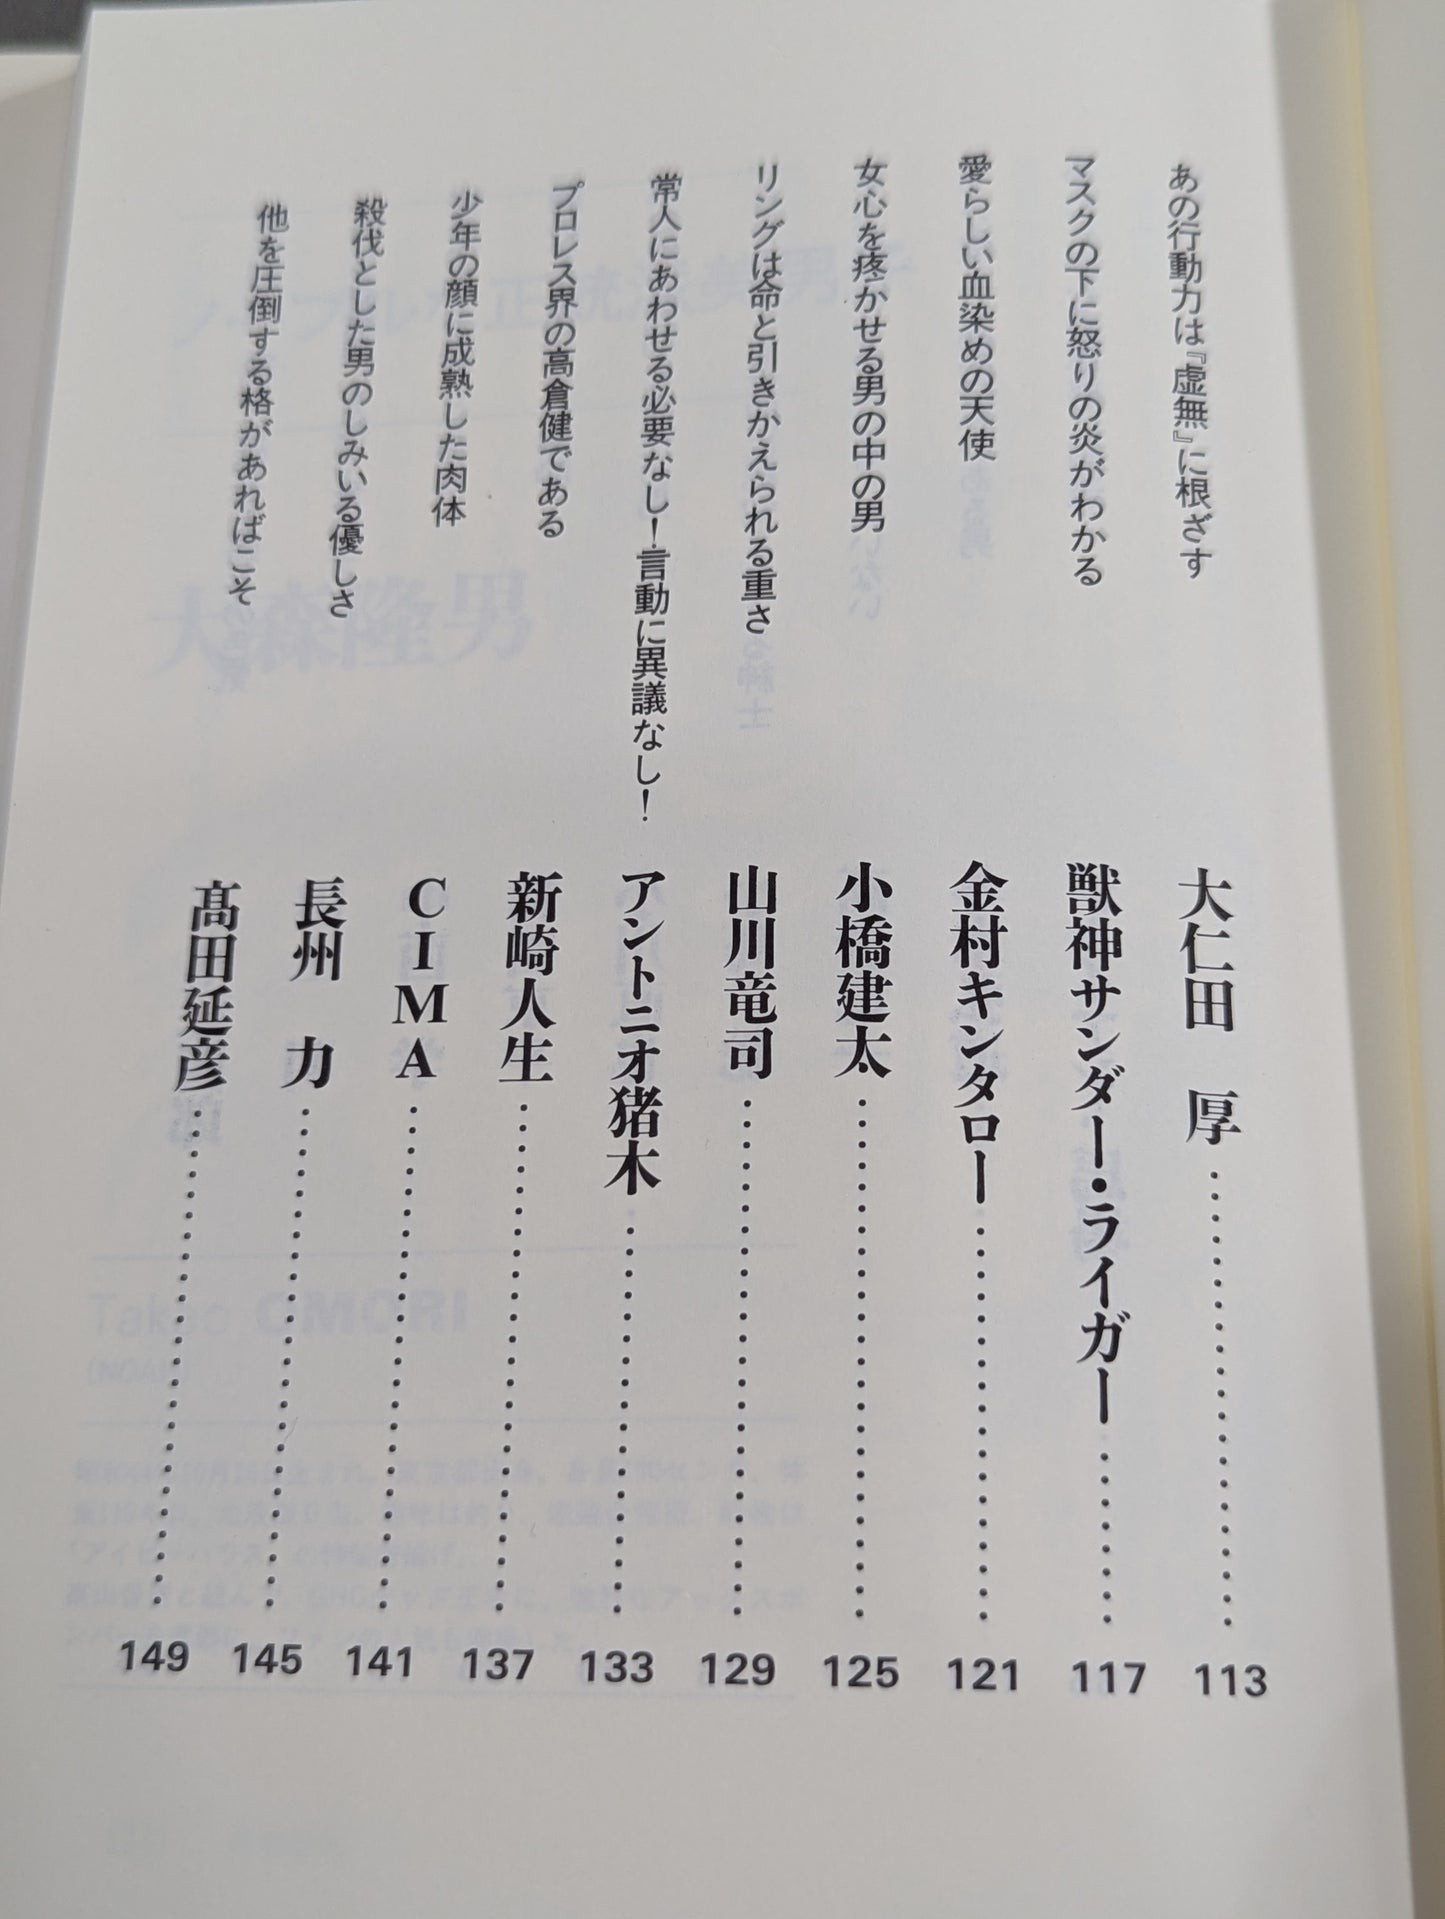 あの行動力は『虚無』に根ざす 大仁田 厚 113
マスクの下に怒りの炎がわかる 獣神サンダー・ライガー 117
愛らしい血染めの天使 金村キンタロー 121
女心を疼かせる男の中の男 小橋建太 125
リングは命と引きかえられる重さ 山川竜司 129
常人にあわせる必要なし!言動に異議なし! アントニオ猪木 133
プロレス界の高倉健である 新崎人生 137
少年の顔に成熟した肉体 CIMA 141
殺伐とした男のしみいる優しさ 長州 力 145
他を圧倒する格があればこそ 髙田延彦 149
大森隆男
Takao OMORI
(NOAH)